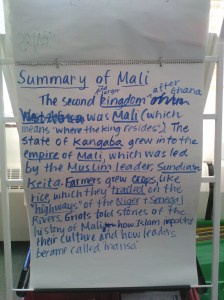 Summary of Mali
The second major kingdom after Ghana
was Mali (which
means "where the king resides"). The
state of Kangaba grew into the
empire of Mali, which was led
by the Muslim leader, Sundiata
Keita. Farmers grew crops like
rice, which they traded on the
"highways" of the Niger + Senegal
Rivers. Griots told stories of the
history of Mali, how Islam impacted
their culture and how leaders
became called mansa.